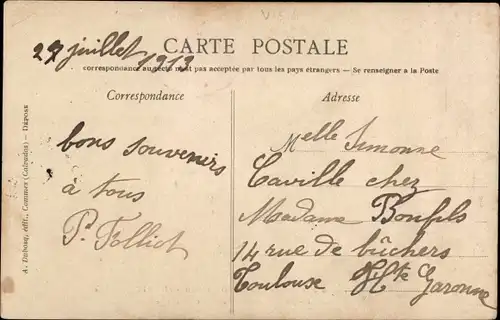 27 juillet 1912
CARTE POSTALE
correspondance au recto n'est pas acceptée par tous les pays étrangers — Se renseigner a la Poste
Correspondance
Adresse
bons souvenirs
à tous
P. Folliot
Melle Simonne
Caville chez
Madame Bonfils
14 rue de bûchers
Toulouse Hte Garonne
édit., Commes (Calvados) — Déposé